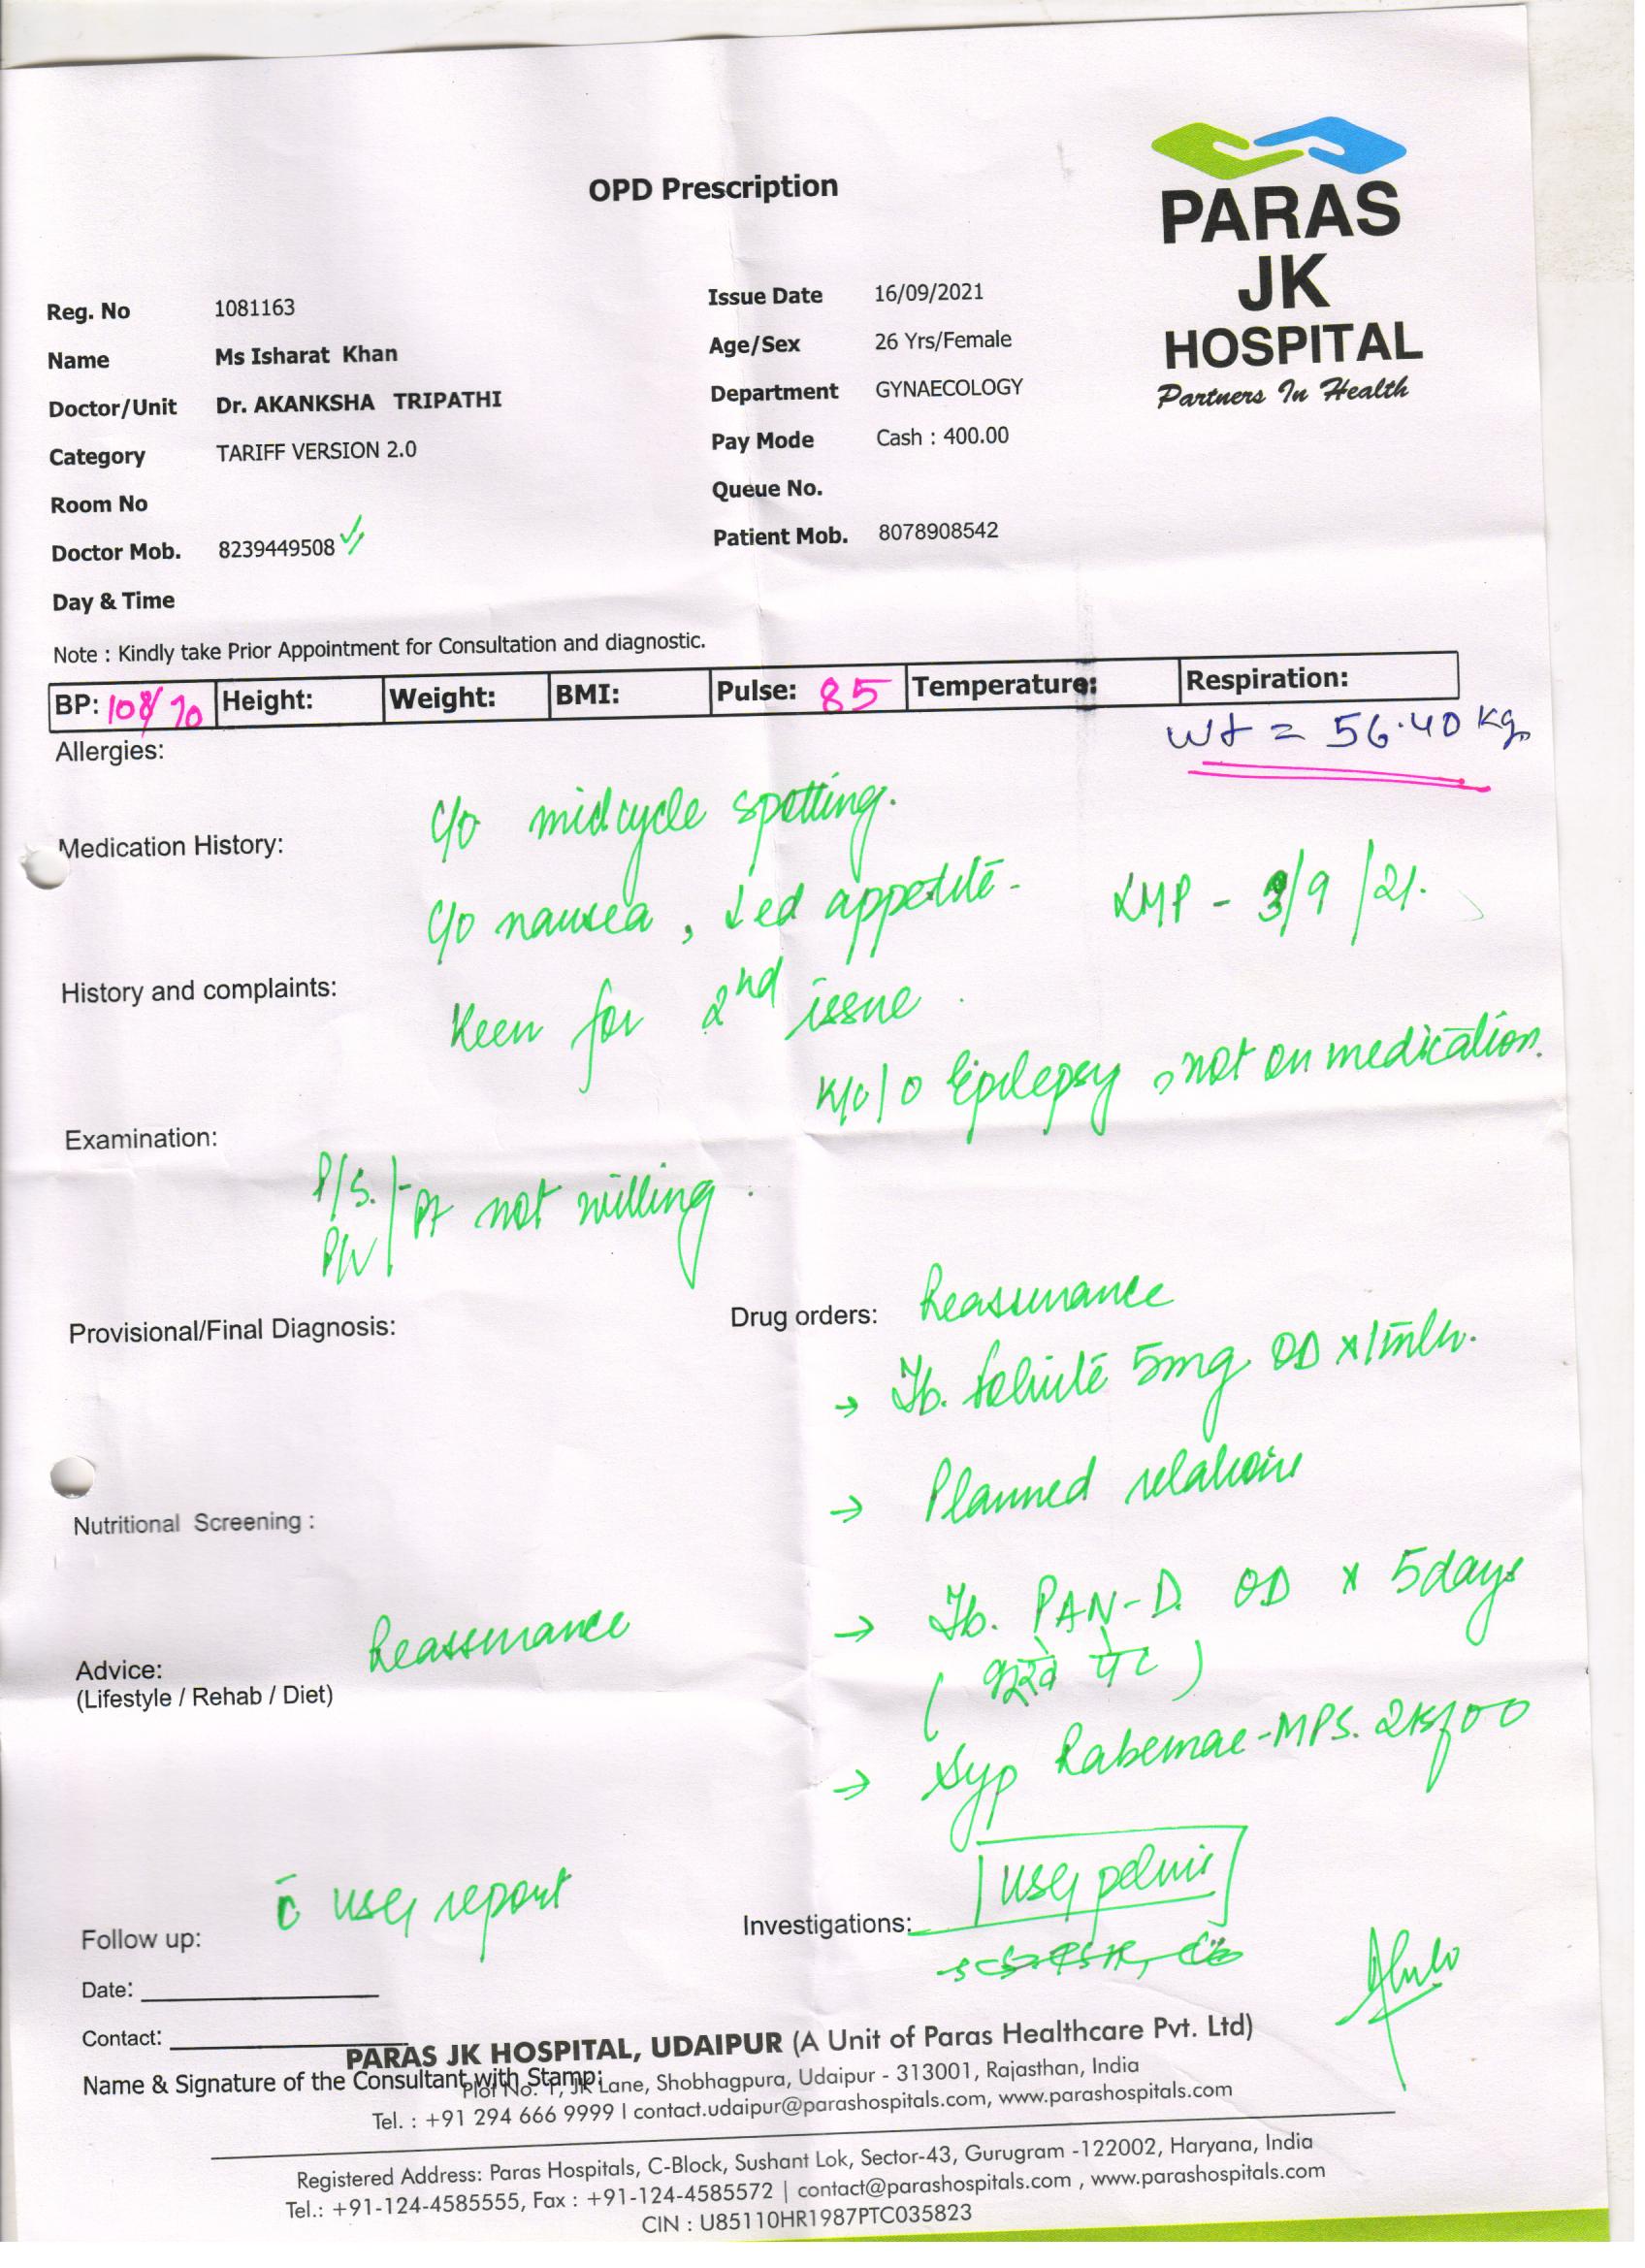 OPD Prescription
PARAS
JK
HOSPITAL
Partners In Health
Reg. No 1081163
Issue Date 16/09/2021
Name Ms Isharat Khan
Age/Sex 26 Yrs/Female
Doctor/Unit Dr. AKANKSHA TRIPATHI
Department GYNAECOLOGY
Category TARIFF VERSION 2.0
Pay Mode Cash : 400.00
Room No
Queue No.
Doctor Mob. 8239449508
Patient Mob. 8078908542
Day & Time
Note : Kindly take Prior Appointment for Consultation and diagnostic.
BP: 108/70 Height: Weight: BMI: Pulse: 85 Temperature: Respiration:
Wt = 56.40 kg
Allergies:
c/o midcycle spotting.
Medication History:
c/o nausea, ↓ed appetite - LMP - 3/9/21.
History and complaints:
Keen for 2nd issue
K/c/o Epilepsy, not on medication.
Examination:
P/S.
P/V - Pt not willing.
Provisional/Final Diagnosis:
Drug orders: Reassurance
→ Tb. 5mg OD x 1
→ Planned relation
Nutritional Screening :
→ Tb. PAN-D. OD x 5 days
(भूखे पेट)
Advice: Reassurance
(Lifestyle / Rehab / Diet)
→ Syp -MPS.
USG pelvis
Follow up: c̄ USG report
Investigations:
Date:
Contact:
PARAS JK HOSPITAL, UDAIPUR (A Unit of Paras Healthcare Pvt. Ltd)
Name & Signature of the Consultant with Stamp:
Plot No. 1, JK Lane, Shobhagpura, Udaipur - 313001, Rajasthan, India
Tel. : +91 294 666 9999 | contact.udaipur@parashospitals.com, www.parashospitals.com
Registered Address: Paras Hospitals, C-Block, Sushant Lok, Sector-43, Gurugram -122002, Haryana, India
Tel.: +91-124-4585555, Fax : +91-124-4585572 | contact@parashospitals.com , www.parashospitals.com
CIN : U85110HR1987PTC035823